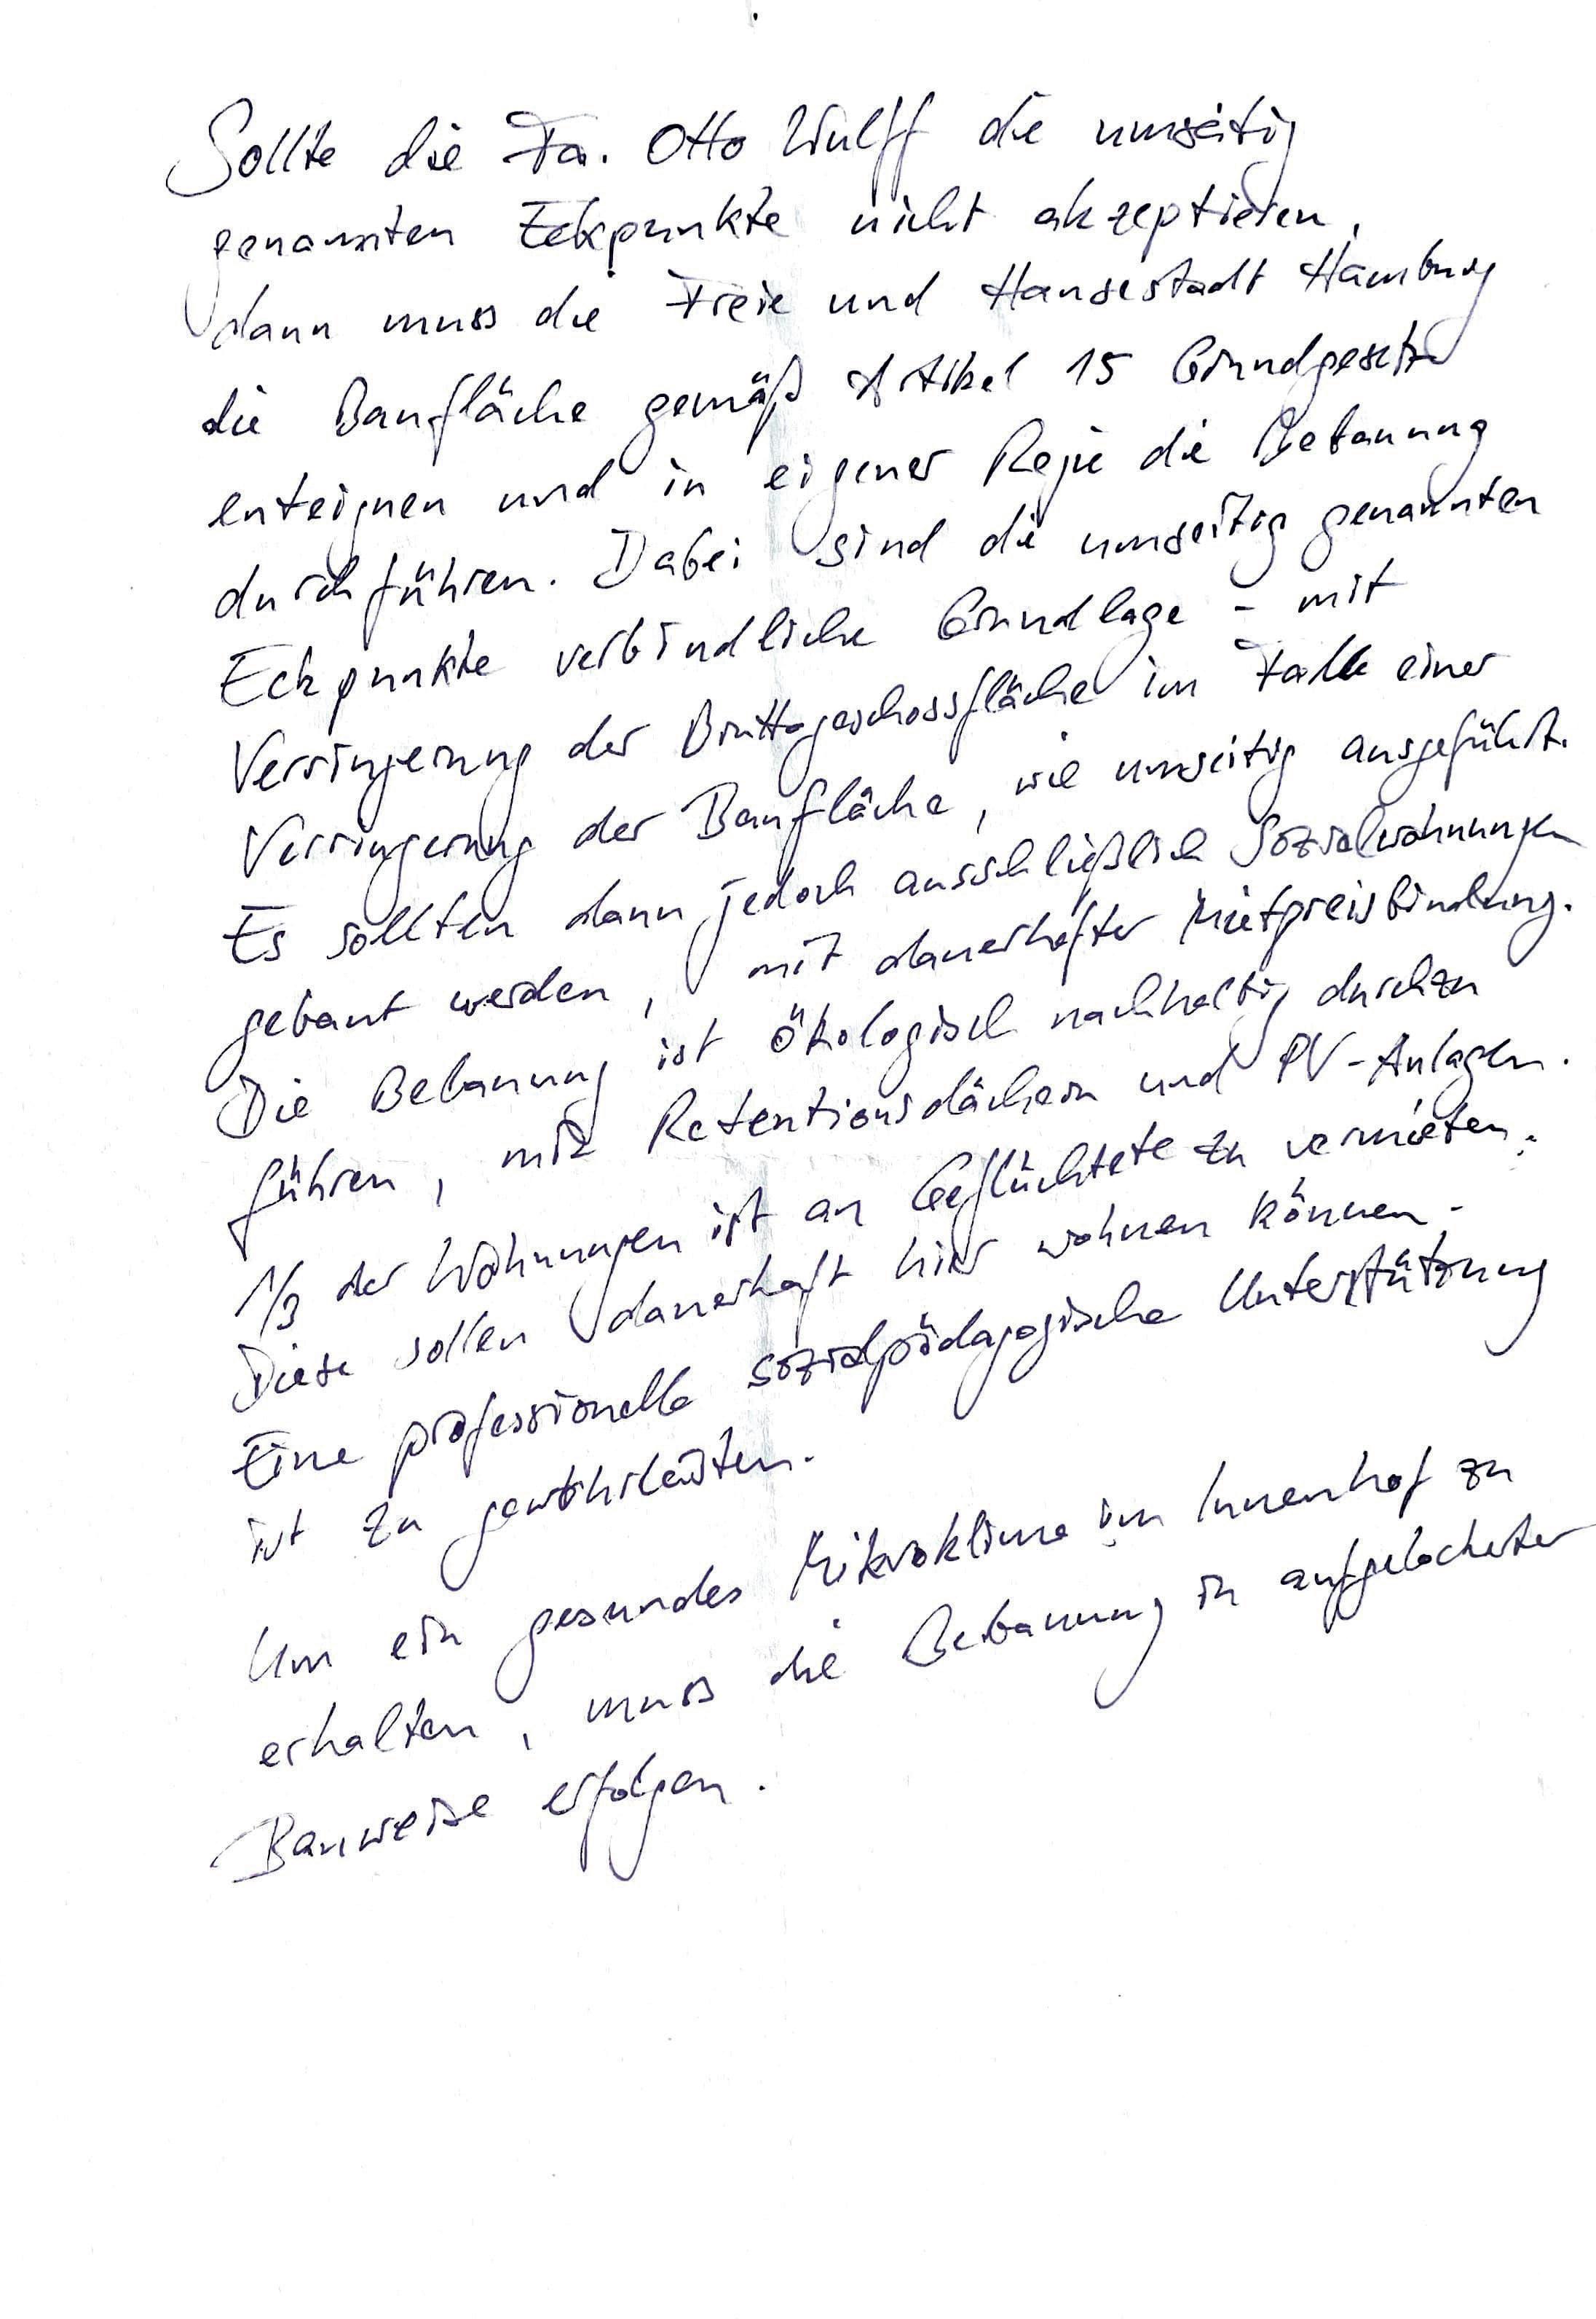 Sollte die Fa. Otto Wulff die umseitig
genannten Eckpunkte nicht akzeptieren,
dann muss die Freie und Hansestadt Hamburg
die Baufläche gemäß Artikel 15 Grundgesetz
enteignen und in eigener Regie die Bebauung
durchführen. Dabei sind die umseitig genannten
Eckpunkte verbindliche Grundlage - mit
Verringerung der Bruttogeschossfläche im Falle einer
Verringerung der Baufläche, wie umseitig ausgeführt.
Es sollten dann jedoch ausschließlich Sozialwohnungen
gebaut werden, mit dauerhafter Mietpreisbindung.
Die Bebauung ist ökologisch nachhaltig durchzu
führen, mit Retentionsdächern und PV-Anlagen.
1/3 der Wohnungen ist an Geflüchtete zu vermieten.
Diese sollen dauerhaft hier wohnen können.
Eine professionelle sozialpädagogische Unterstützung
ist zu gewährleisten.
Um ein gesundes Mikroklima im Innenhof zu
erhalten, muss die Bebauung in aufgelockerter
Bauweise erfolgen.